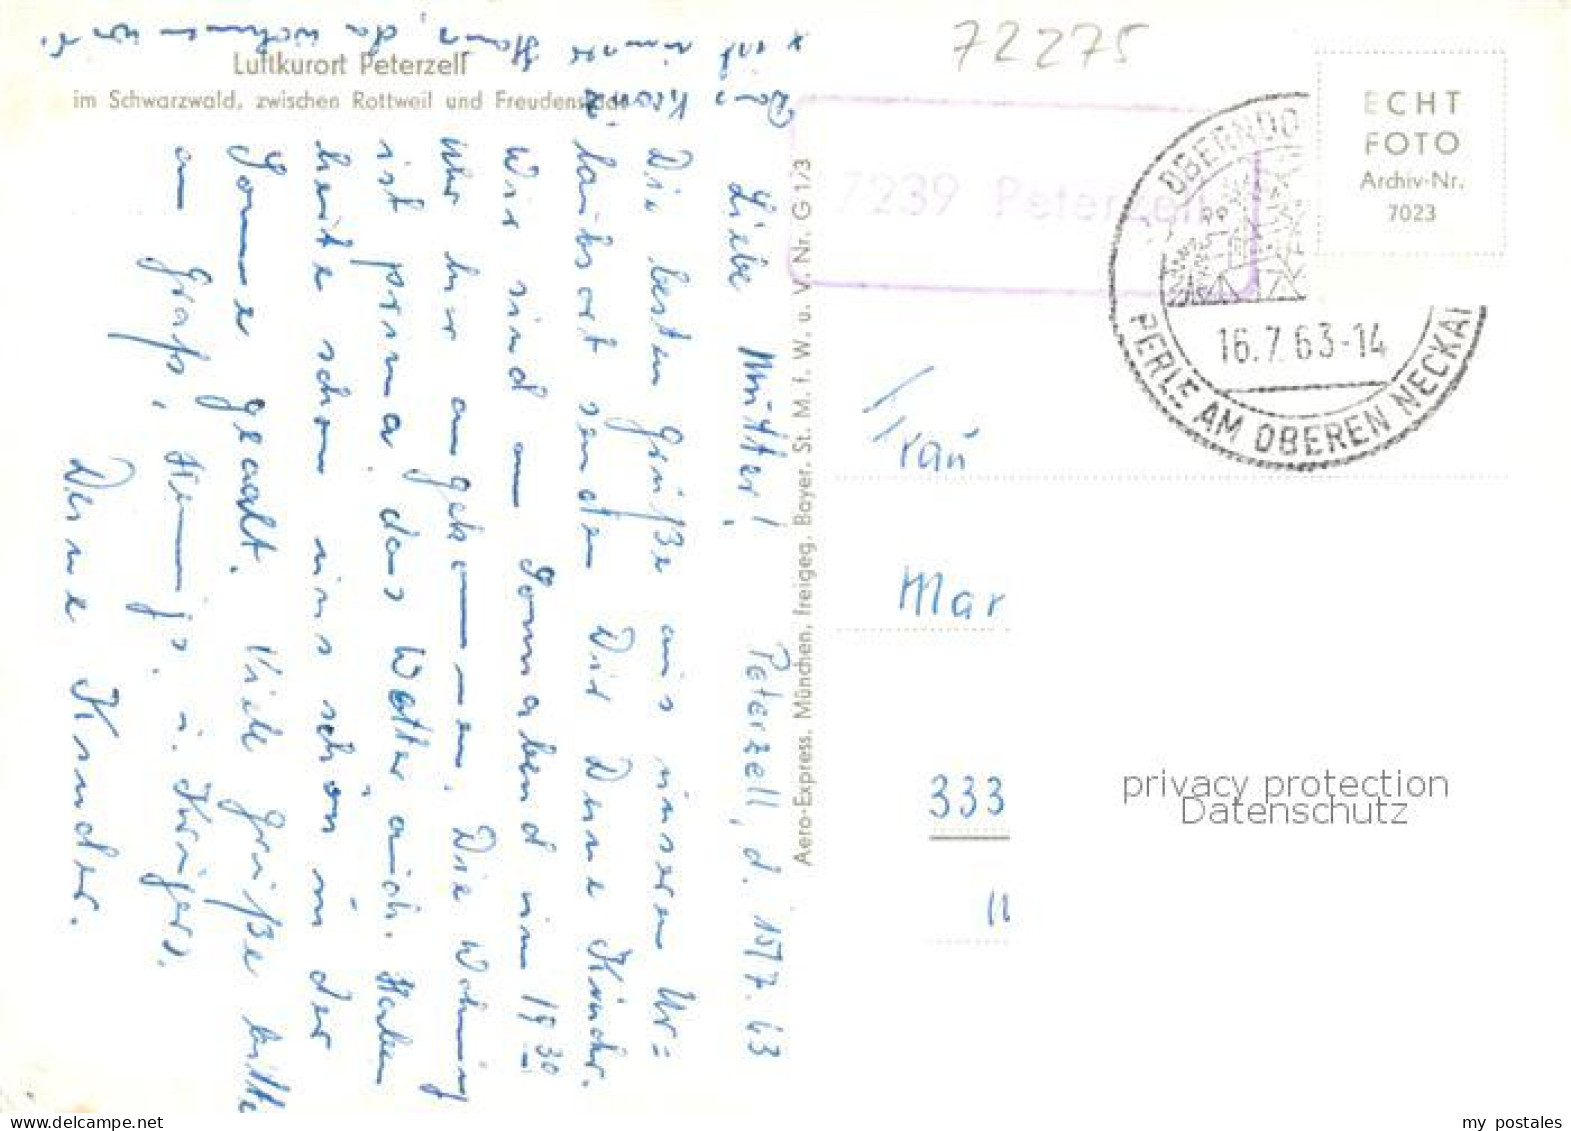 72275
Luftkurort Peterzell
im Schwarzwald, zwischen Rottweil und Freudenstadt
x ist unser
Haus, da wohnen wir.
Peterzell, d. 15/7.63
Liebe Mutter!
Die besten Grüße aus unseren Ur=
laubsort senden Dir Deine Kinder.
Wir sind am Sonnabend um 19 30
Uhr hier angekommen. Die Wohnung
ist prima, das Wetter auch. Haben
heute schon uns schön in der
Sonne geaalt. Viele Grüße bitte
an Krügers.
Deine Kinder.
Aero-Express. München, freigeg. Bayer. St. M. f. W. u. V. Nr. G 1/3
7239 Peterzell
OBERNDO
16.7.63-14
PERLE AM OBEREN NECKAR
ECHT
FOTO
Archiv-Nr.
7023
Frau
Mar
333
privacy protection
Datenschutz
my postales